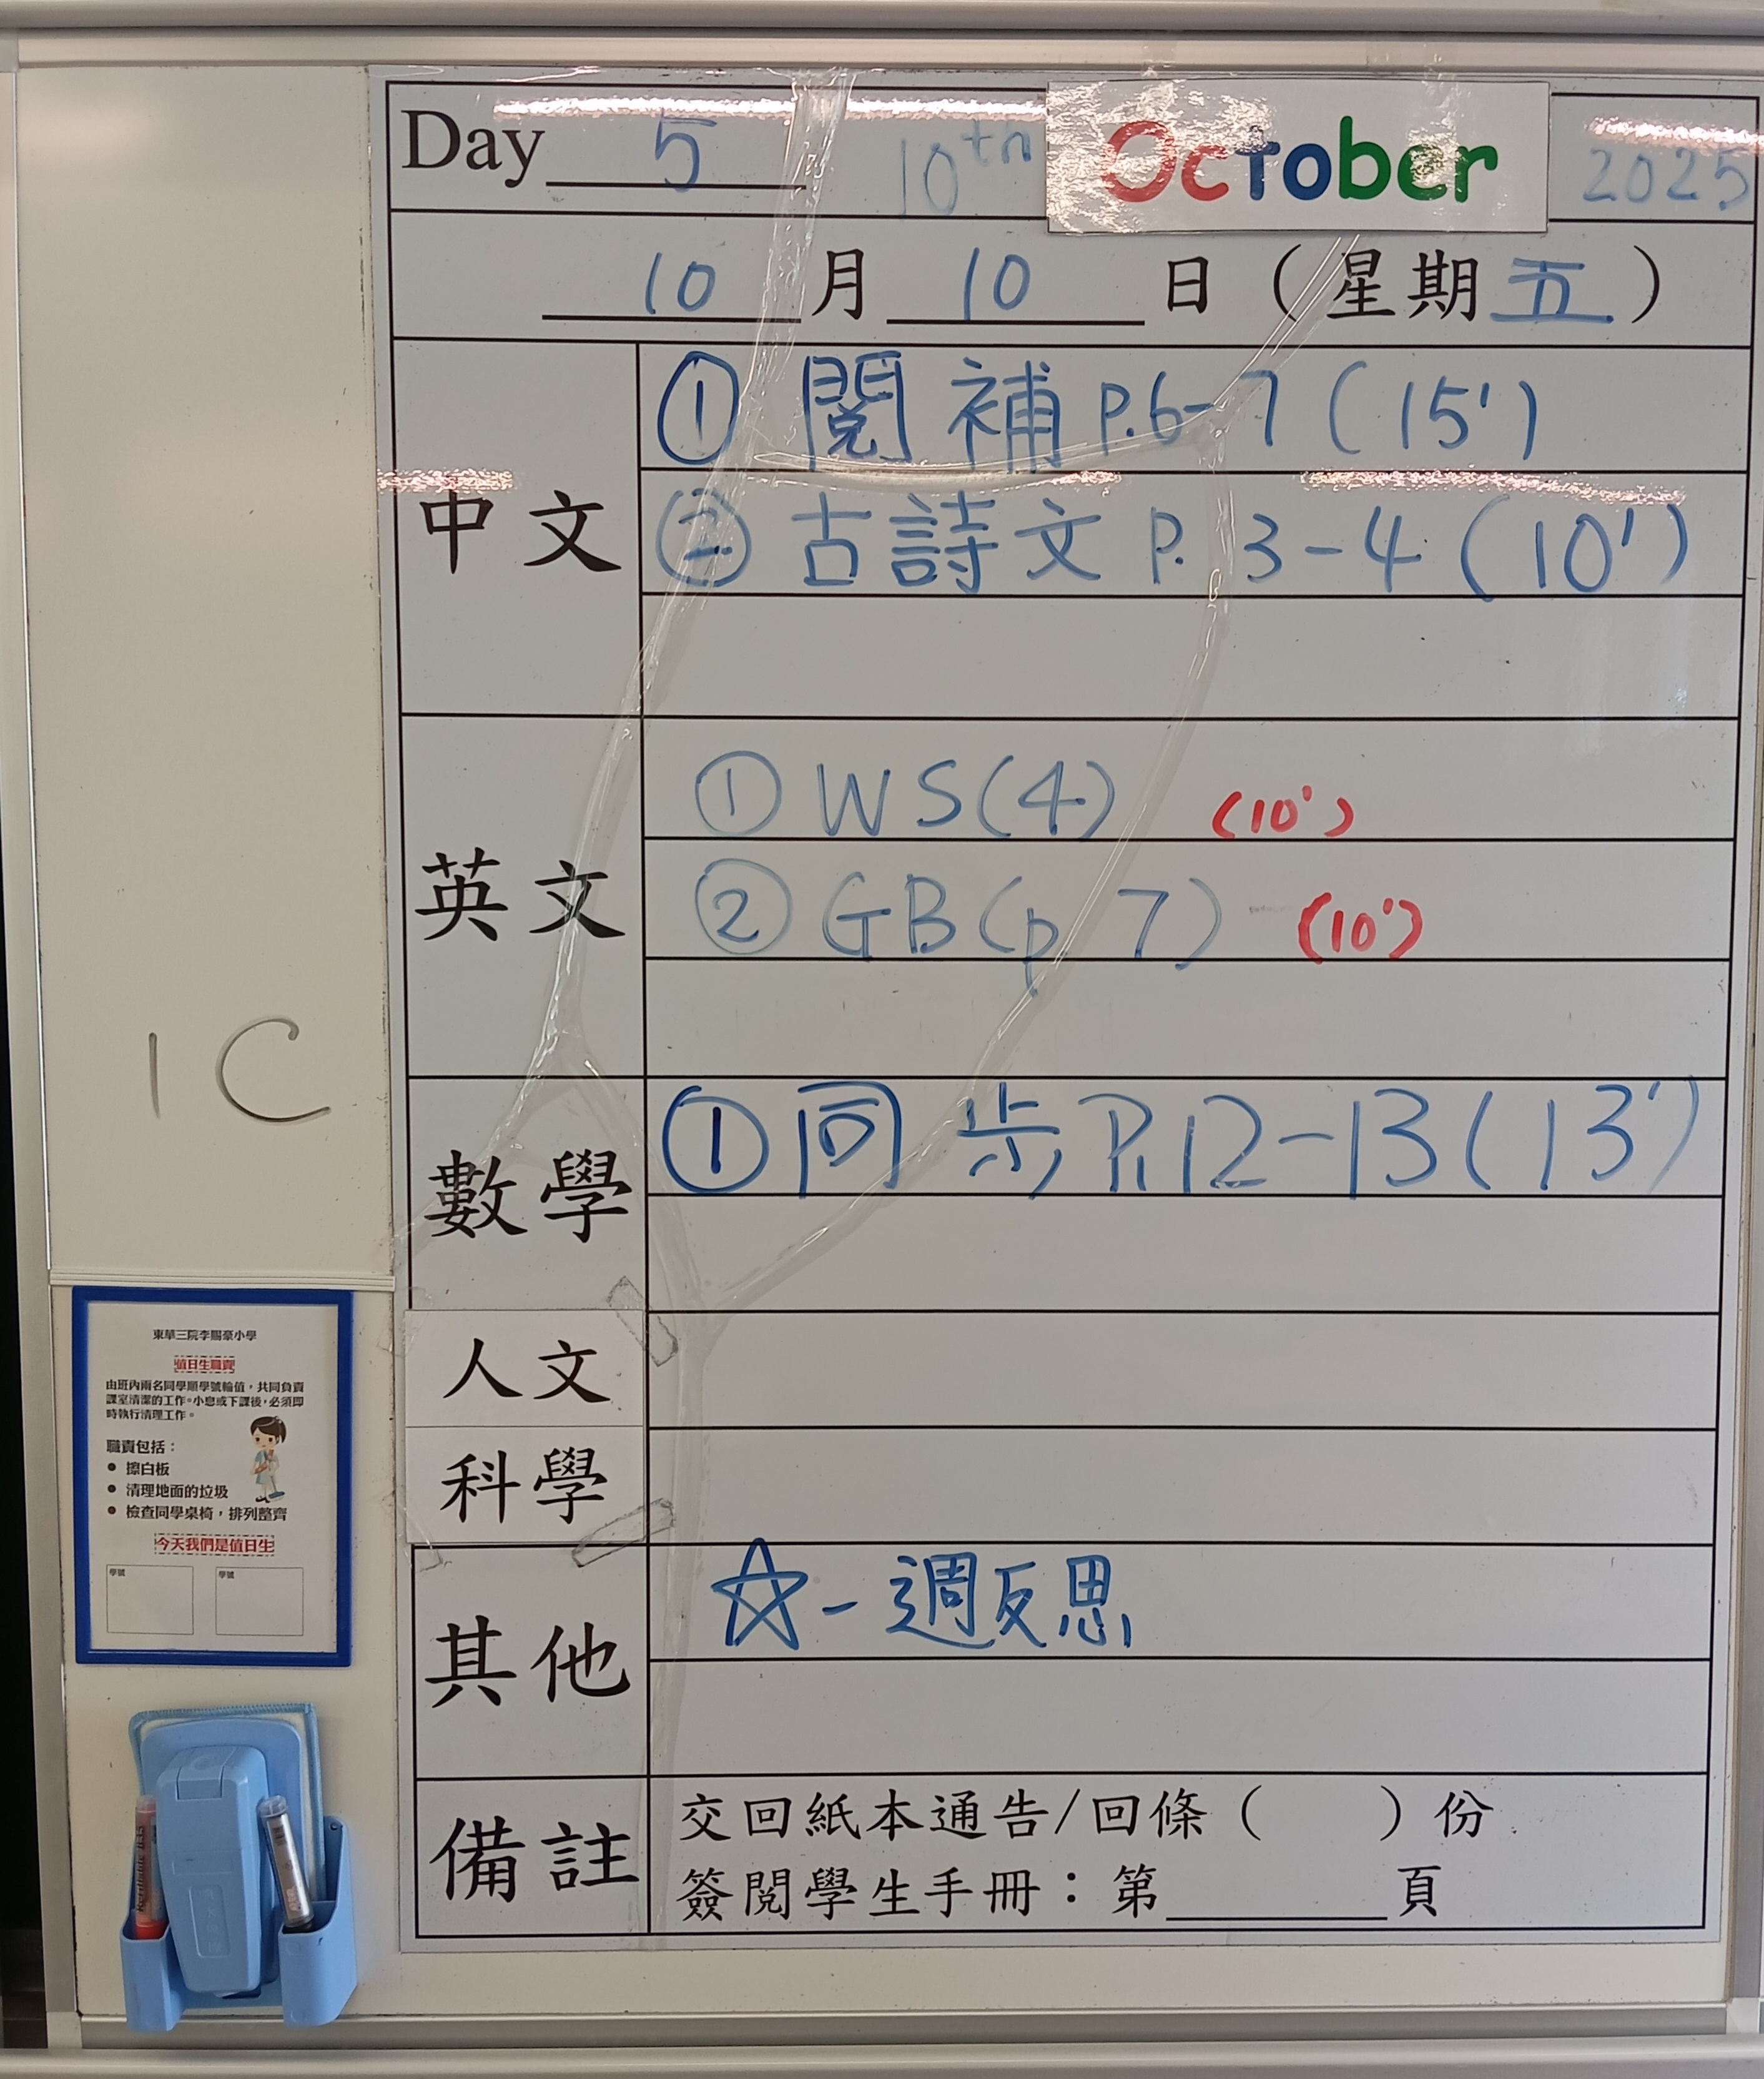 Day 5 10th October 2025
10 月 10 日 (星期五)
中文
① 閱補 P.6-7 (15')
② 古詩文 P. 3-4 (10')
英文
① WS(4) (10')
② GB(p 7) (10')
數學
① 同步 P.12-13 (13')
人文
科學
其他
☆ - 週反思
備註
交回紙本通告/回條 ( ) 份
簽閱學生手冊：第______頁
1C
東華三院李賜豪小學
值日生職責
由班內兩名同學順學號輪值，共同負責
課室清潔的工作。小息或下課後，必須即
時執行清理工作。
職責包括：
● 擦白板
● 清理地面的垃圾
● 檢查同學桌椅，排列整齊
今天我們是值日生
學號 學號